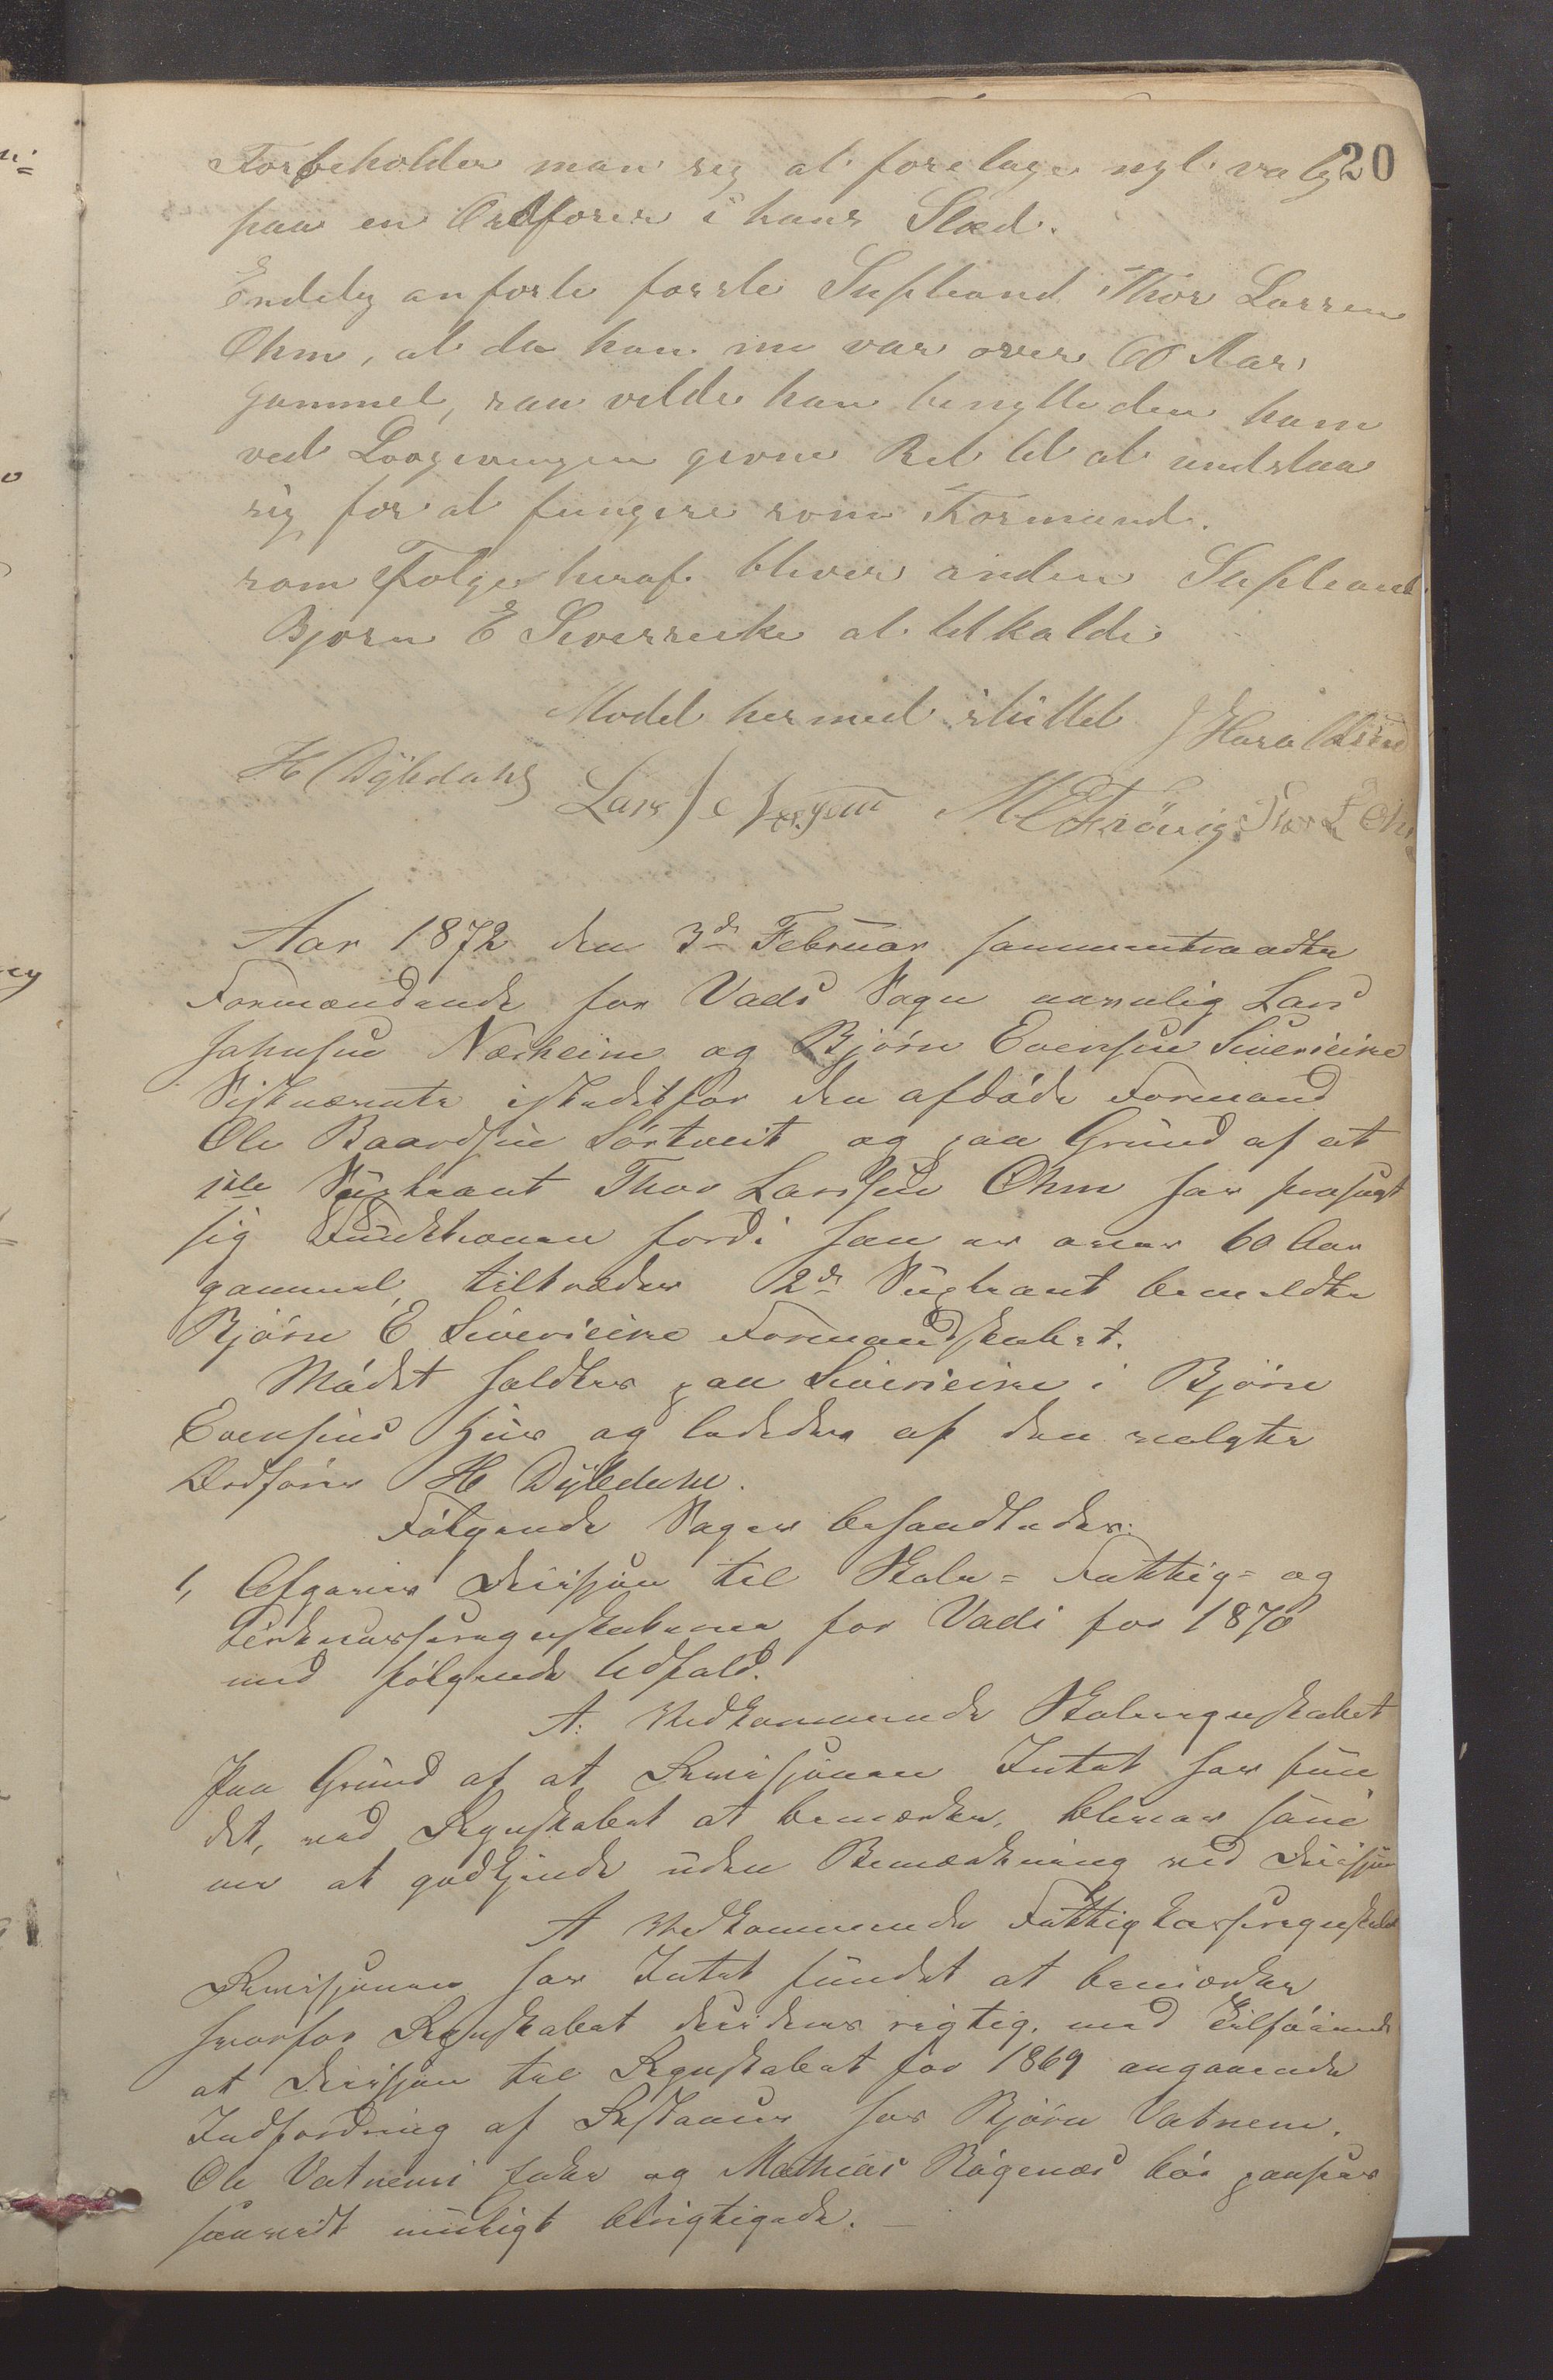 20
Forbeholder man sig at foretage nyt valg
paa en Ordforer i hans Sted.
Endelig anforte forste Supleand Thor Larsen
Ohm, at da han nu var over 60 Aar
gammel, saa vilde han benytte den ham
ved Lovgivningen givne Ret til at undslaa
sig for at fungere som Formand.
som Folge heraf bliver anden Supleant
Bjorn E Sivesreike at tilkalde
Modet hermed sluttet J Haraldsen
H Dybdahl Lars J M E Frövig Thor L Ohm
Aar 1872 den 3de Februar sammentraadte
Formændende for Vads Sogn navnlig Lars
Johnsen Nærheim og Björn Evensen Siverieike
Sistnævnte istedetfor den afdöde Formand
Ole Baardsen Sörtveit og paa Grund af at
1ste Supleant Thor Larssen Ohm har frasagt
sig Funktionen fordi han er over 60 Aar
gammel, tiltræder 2de Supleant bemeldte
Björn E Siverieike Formandskabet.
Mödet holdtes paa Siverieike i Björn
Evensens Hus og lededes af den valgte
Ordförer H Dybdahl.
Fölgende Sager behandledes:
1, Afgaves Desisjon til Skole- Fattig- og
for Vads for 1870
med fölgende Udfald.
A: Vedkommende Skoleregnskabet
Paa Grund af at Revisjonen Intet har fun
det, ved Regnskabet at bemærke, bliver samme
at godkjende uden Bemærkning ved Desisjon
A Vedkommende Fattigkasseregnskabet
Revisjonen har Intet fundet at bemærke
hvorfor Regnskabet desideres rigtig, med Tilföiende
at Desisjon til Regnskabet for 1869 angaaende
Indfordring af Restancer hos Björn Vatnem,
Ole Vatnems Enke og Mathias Rögenæs bör
saavidt muligt berigtigede.